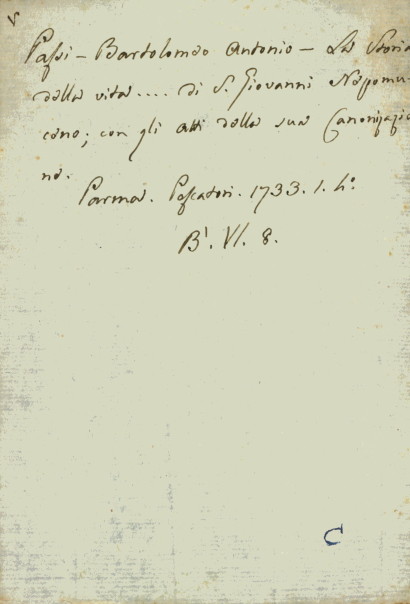 v
Passi - Bartolomeo Antonio - La Storia
della vita .... di S. Giovanni Nepomu-
ceno; con gli Atti della sua Canonizazio
ne.
Parma. 1733. 1. 4º
B¹. VI. 8.
C